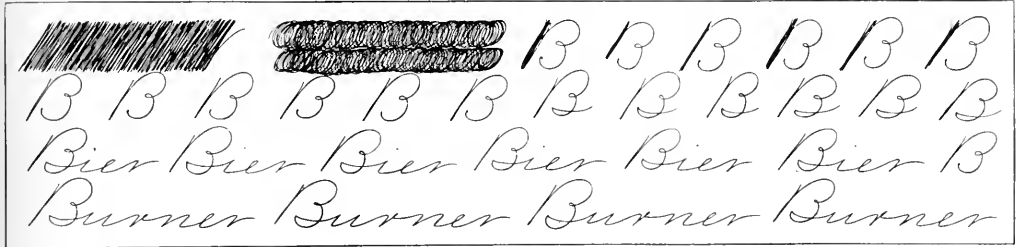 B B B B B B
B B B B B B B B B B B B
Bier Bier Bier Bier Bier Bier B
Burner Burner Burner Burner